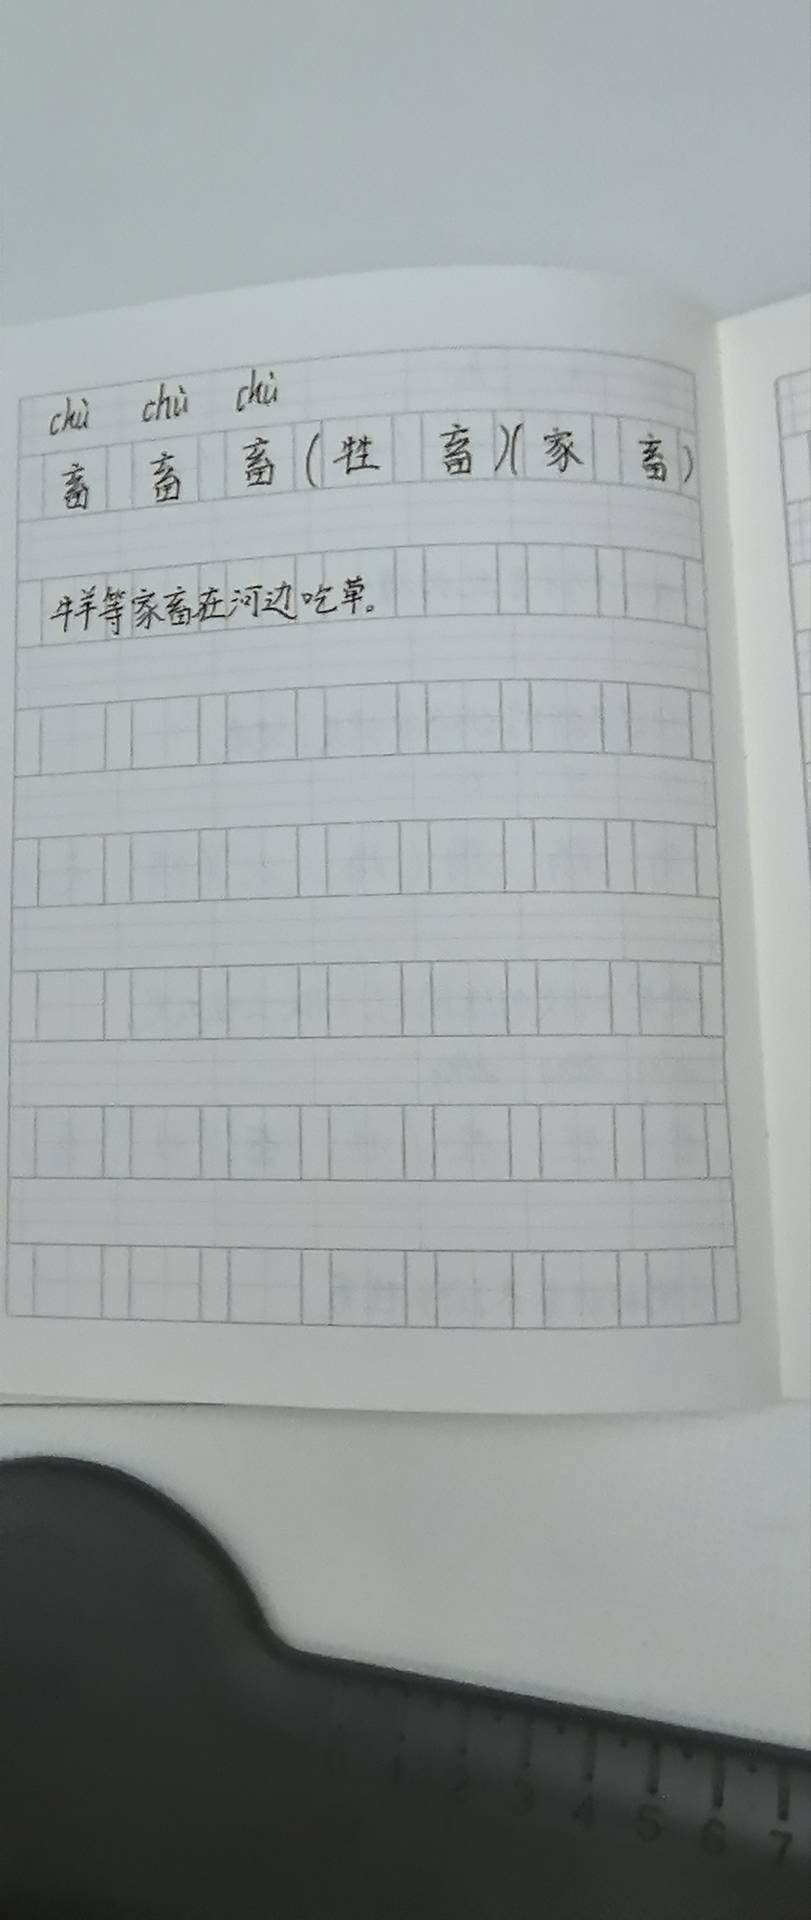 chù chù chù
畜 畜 畜 (牲 畜)(家 畜)
牛羊等家畜在河边吃草。
1 2 3 4 5 6 7